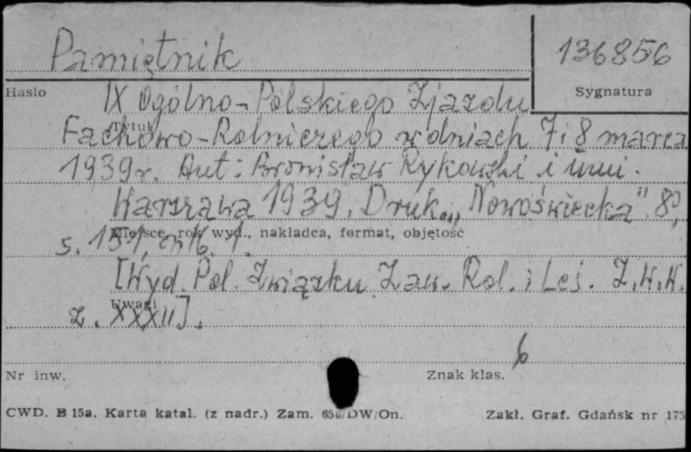 Pamiętnik
136856
Hasło
Sygnatura
IX Ogólno-Polskiego Zjazdu
Tytuł
Fachowo-Rolniczego w dniach 7 i 8 marca
1939 r. Aut: Bronisław Rykowski i inni.
Warszawa 1939. Druk. „Nowoświecka" 8°,
Miejsce, rok wyd., nakładca, format, objętość
s. 151,
[Wyd. Pol. Związku Zaw. Rol. i Leś. Z.W.W.
Uwagi
z. XXXII].
6
Nr inw.
Znak klas.
CWD. B 15a. Karta katal. (z nadr.) Zam. DW/On.
Zakł. Graf. Gdańsk nr 175